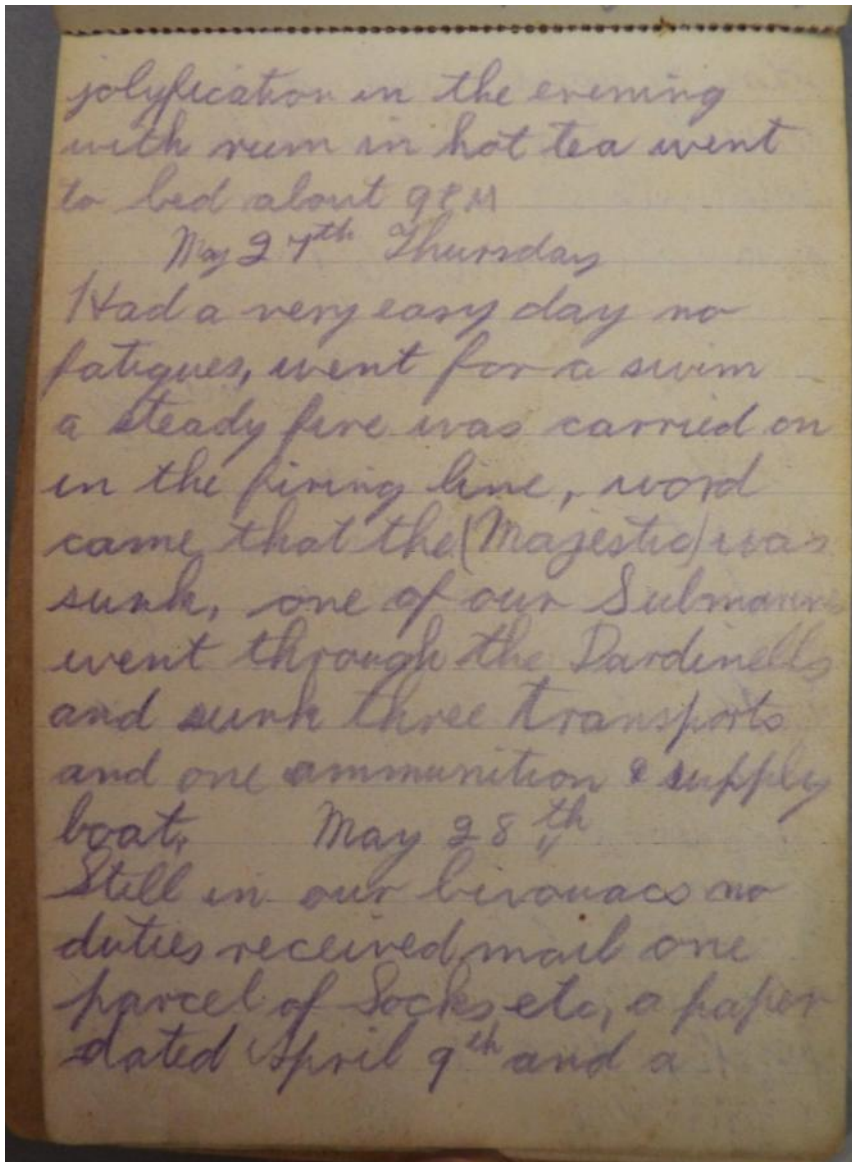 jolyfication in the evening
with rum in hot tea went
to bed about 9 P.M
May 27th Thursday
Had a very easy day no
fatigues, went for a swim
a steady fire was carried on
in the firing line, word
came that the (Majestic) was
sunk, one of our Submarines
went through the Dardinells
and sunk three transports
and one ammunition & supply
boat. May 28th
Still in our bivouacs no
duties received mail one
parcel of Socks etc, a paper
dated April 9th and a